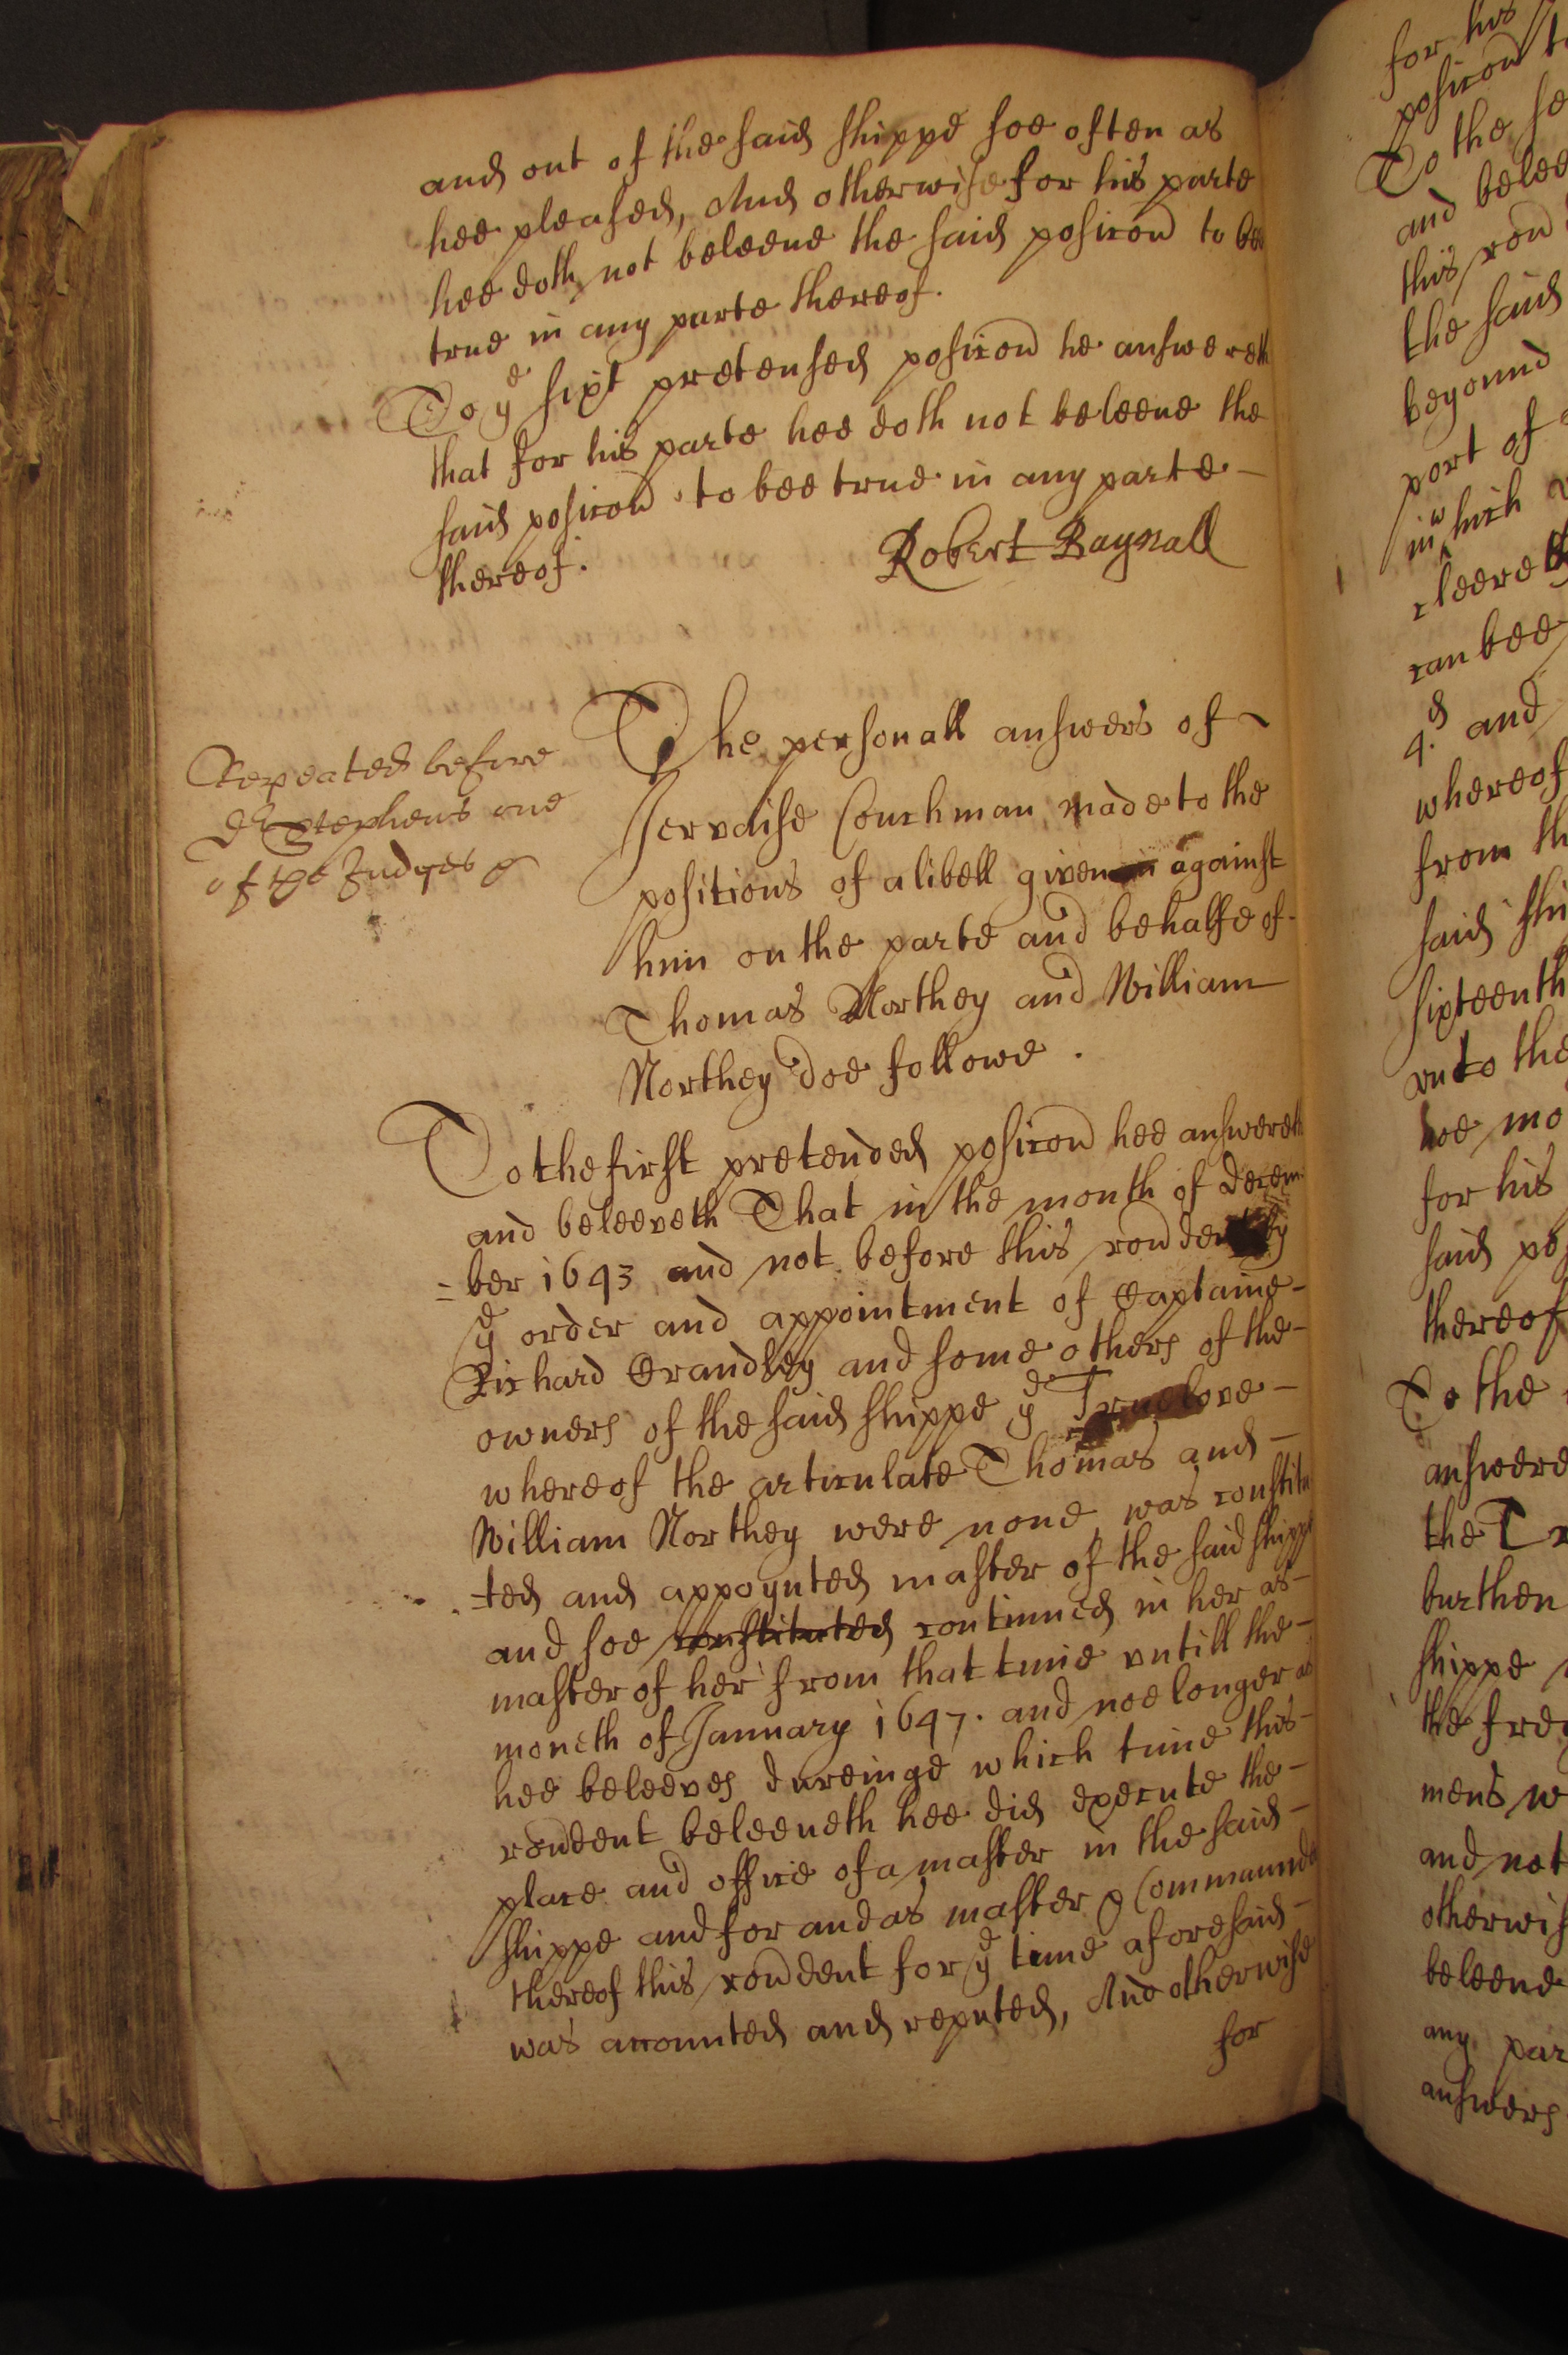 and out of the said shippe soe often as
hee pleased, And otherwise for his parte
hee doth not beleeue the said posicon to bee
true in any parte thereof.
To ye sixt pretensed posicon he answereth
that for his parte hee doth not beleeue the
said posicon to bee true in any parte
thereof.
Robert Bagnall
Repeated before
Dr Stephens one
of the Judges
The personall answers of
Jervaise Couchman made to the
positions of a libell given in against
him on the parte and behalfe of
Thomas Northey and William
Northey doe followe .
To the first pretended posicon hee answereth
and beleeveth That in the month of Decem
=ber 1643 and not before this rondent by
ye order and appointment of Captaine
Richard Crandley and some others of the
owners of the said shippe ye Truelove
whereof the articulate Thomas and
William Northey were none was constitu
=ted and appoynted master of the said shippe
and soe constituted continued in her as
master of her from that time untill the
moneth of January 1647. and noe longer as
hee beleeves dureinge which time this
rondent beleeueth hee did execute the
place and office of a master in the said
shippe and for and as master & Commaunder
thereof this rondent for ye time aforesaid
was accounted and reputed, And otherwise
for
for his
posicon
To the
and beleeu
this ron
the said
beyound
port of
in which
cleere
can bee
4. and
whereof
from th
said shi
sixteenth
unto the
hee mo
for his
said po
thereof
To the
answere
the Tr
burthen
shippe
the fre
mens w
and not
otherwis
beleeue
any par
answers